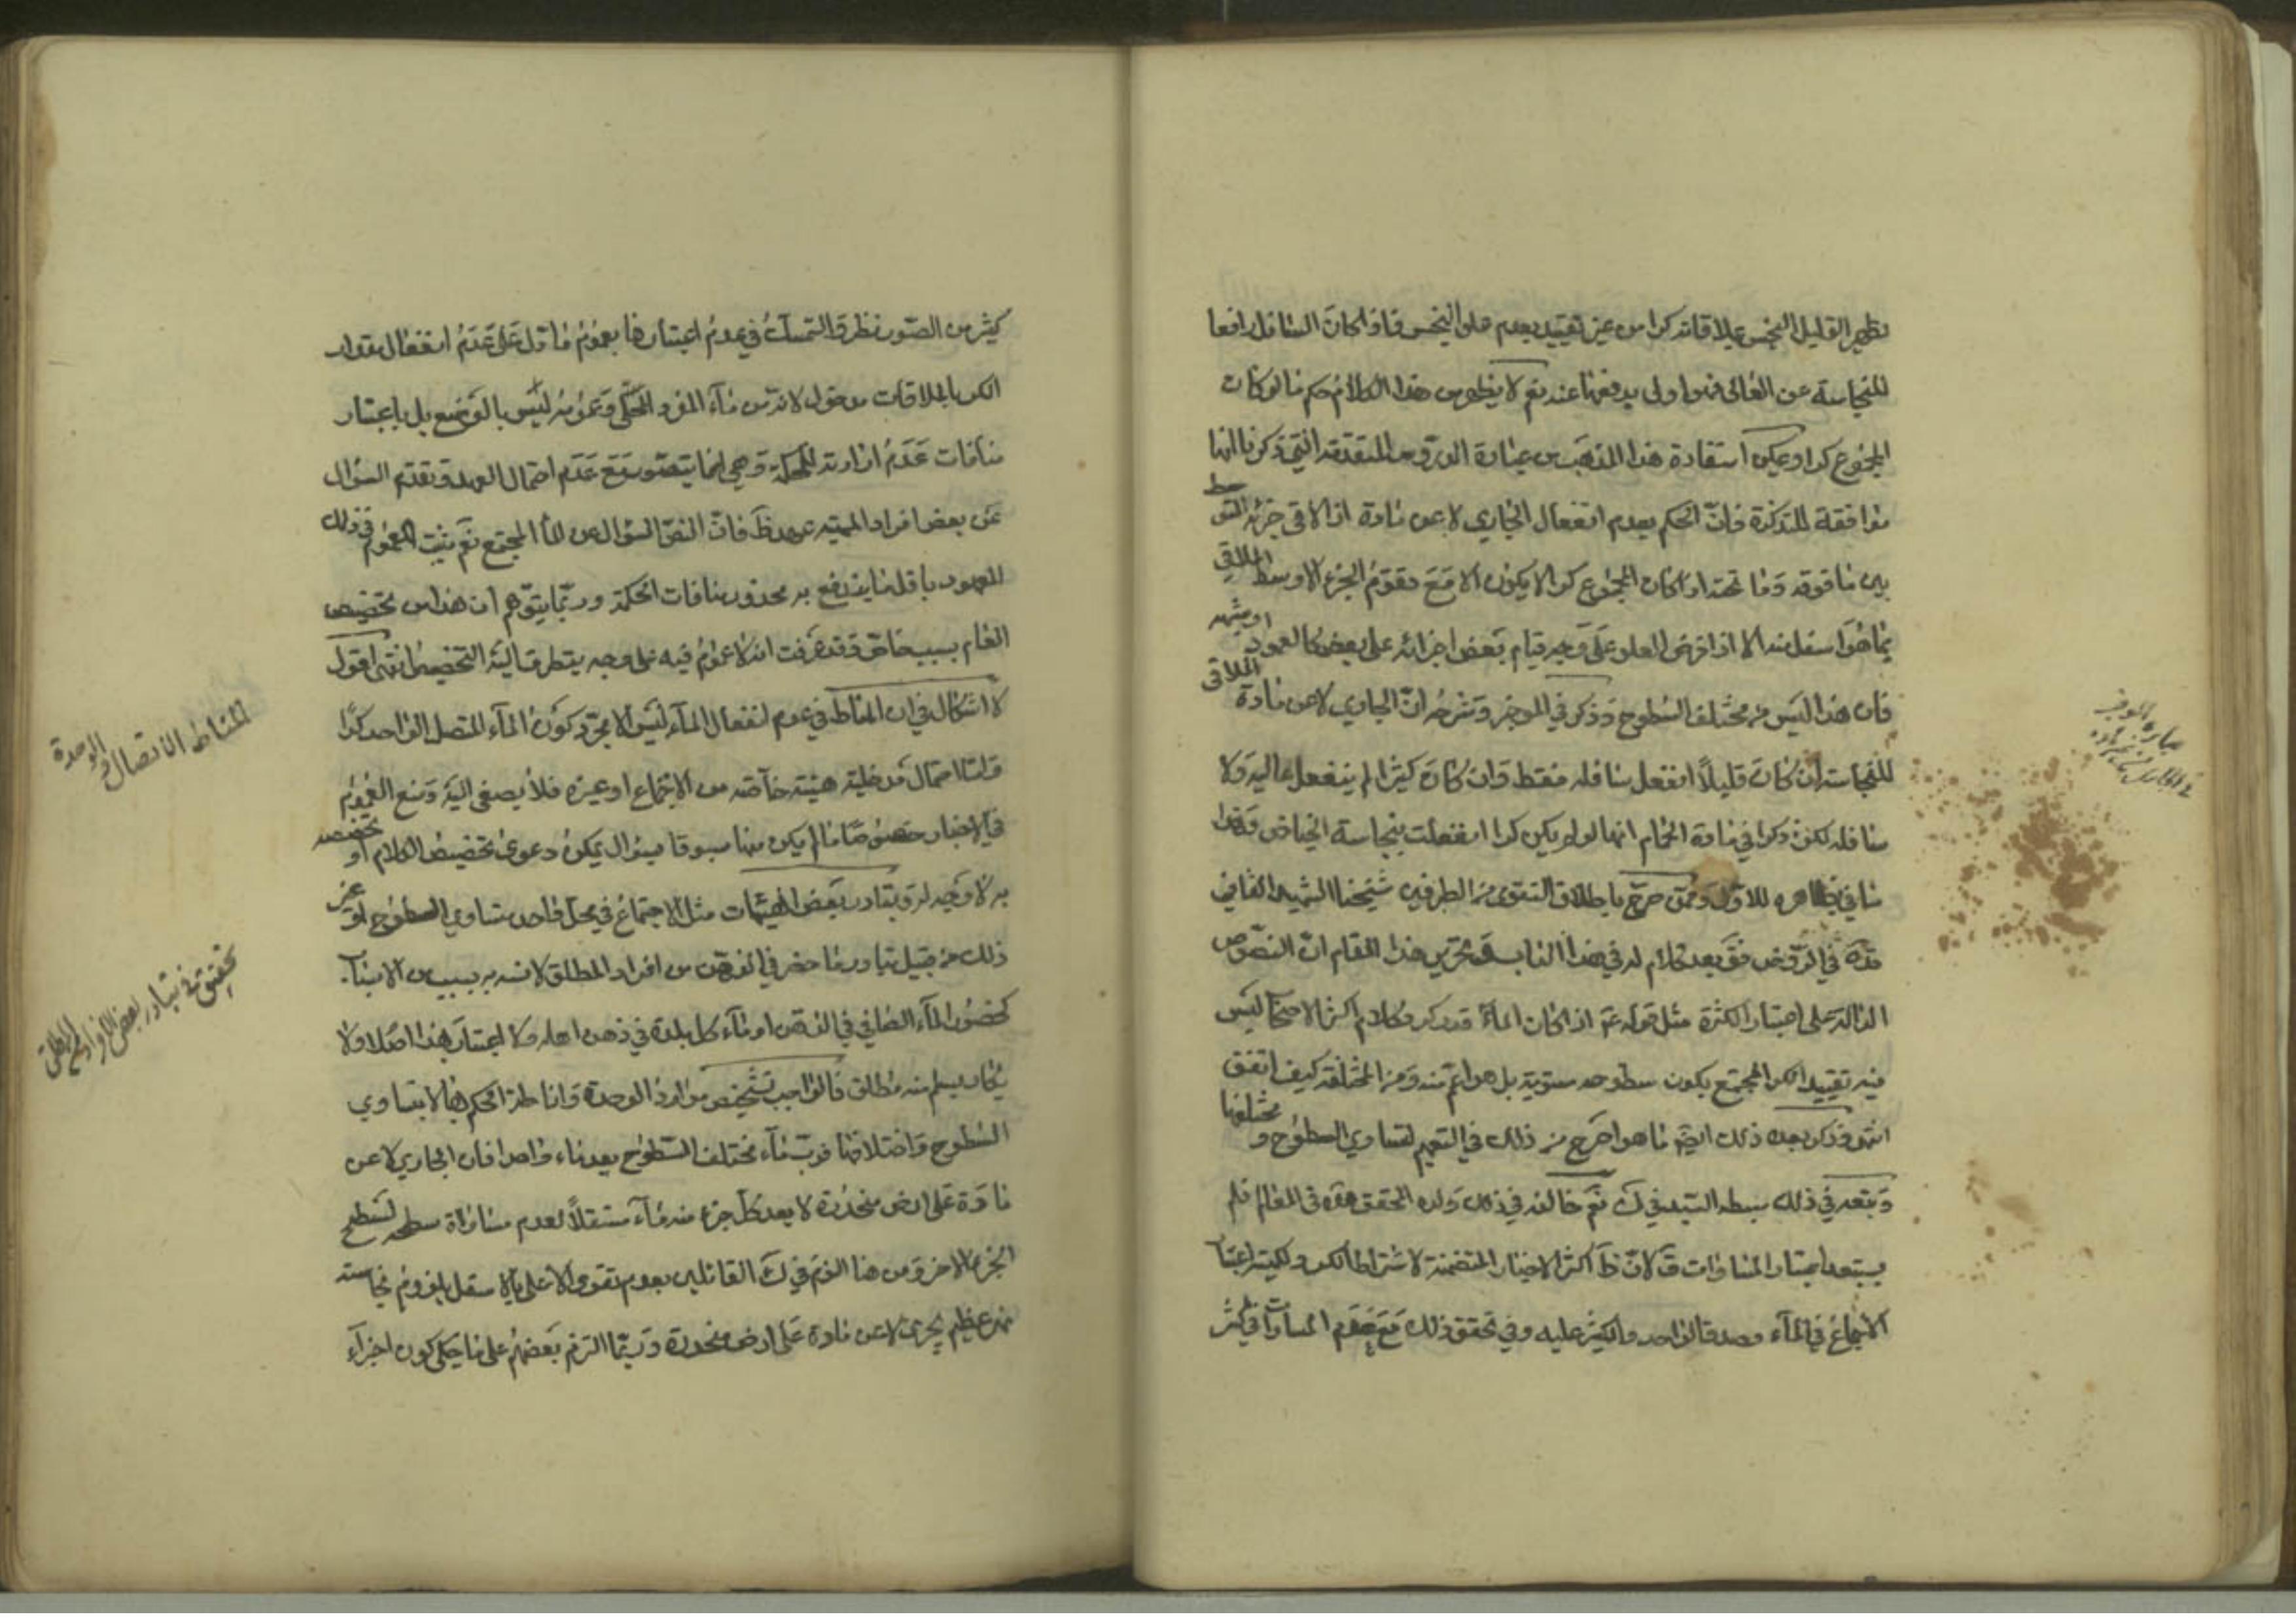 تطهير القليل النجس بملاقاته كرا من غير تقييد بعدم علو النجس فاذا كان السافل رافعا
للنجاسة عن العالي فهو اولى بدفعها عنه نعم لا يظهر من هذا الكلام حكم ما لو كان
المجموع كرا ويمكن استفادة هذا المذهب من عبارة الدروس المتقدمة التي ذكرنا انها
موافقة للتذكرة فان الحكم بعدم انفعال الجاري لا عن مادة اذا لاقى جزئه المتوسط
بين ما فوقه وما تحته اذا كان المجموع كرا لا يكون الا مع تقوم الجزء الاوسط الملاقي
بما هو اسفل منه الا اذا فرض العلو على وجه قيام بعض اجزائه على بعض كالعمود او شبهه
فان هذا ليس من مختلف السطوح وذكر في الموجز وشرحه ان الجاري لا عن مادة الملاقي
للنجاسة ان كان قليلاً انفعل سافله فقط وان كان كثيرا لم ينفعل عاليه ولا
سافله لكن ذكرا في مادة الحمام انها لو لم يكن كرا انفعلت بنجاسة الحياض وهذا
ينافي بظاهره للاول وممن صرح باطلاق التقوى من الطرفين شيخنا الشهيد الثاني
قده في الروض فق بعد كلام له في هذا الباب وتحرير هذا المقام ان النصوص
الدالة على اعتبار الكثرة مثل قوله ع اذا كان الماء قدر كر وكلام اكثر الاصحاب ليس
فيه تقييد الكر المجتمع بكون سطوحه مستوية بل هو اعم منه ومن المختلفة كيف اتفق
انتهى وذكر بعد ذلك ايضا ما هو اصرح من ذلك في التعميم لتساوي السطوح و مختلفها
وتبعه في ذلك سبطه السيد في ك نعم خالفه في ذلك ولده المحقق فقده في المعالم فلم
يستبعد اعتبار المساوات ق لان ظ اكثر الاخبار المتضمنة لاشتراط الكر وكميته اعتبار
الاجتماع في الماء وصدق الواحد والكثير عليه وفي تحقق ذلك مع عدم المساوات في كثير
عبارة الموجز
في الجاري لا عن مادة
كثير من الصور نظر والتمسك في عدم اعتبارها بعموم ما دل على عدم انفعال مقدار
الكر بالملاقات مدخول لانه من باء المفرد المحلى وعمومه ليس بالوضع بل باعتبار
منافات عدم ارادته للحكمة وهي انما يتصور مع عدم احتمال العهد وتقدم السؤال
عن بعض افراد المهية عهد ظ فان النص السؤال عن الماء المجتمع نعم يثبت العموم في ذلك
المعهود باقل ما يندفع به محذور منافات الحكمة وربما يتوهم ان هذا من تخصيص
العام بسبب خاص وقد عرفت انه لا عموم فيه على وجه يتطرق اليه التخصيص انتهى اقول
لا اشكال في ان المناط في عدم انفعال الماء ليس الا مجرد كون الماء المتصل الواحد كرا
واما احتمال مدخلية هيئة خاصة من الاجتماع او غيره فلا يصغى اليه ومنع العموم
في الاخبار خصوصا ما لم يكن منها مسبوقا بسؤال يمكن دعوى تخصيص الكلام او تخصصه
به لا وجه له وتبادر بعض الهيئات مثل الاجتماع في محل واحد متساوي السطوح او غير
ذلك من قبيل تبادر ما حضر في الذهن من افراد المطلق لانسه به بسبب من الاسباب
كحضور الماء الصافي في الذهن او ماء كل بلدة في ذهن اهله ولا اعتبار بهذا اصلا ولا
يكاد يسلم منه مطلق فالواجب تشخيص موارد الوحدة واناطة الحكم بها لا بتساوي
السطوح واختلافها فرب ماء مختلف السطوح يعد ماء واحدا فان الجاري لا عن
مادة على ارض منحدرة لا يعد كل جزء منه ماء مستقلاً لعدم مساواة سطحه لسطح
الجزء الاخر ومن هنا الزم في ك القائلين بعدم تقوى الاعلى بالاسفل بلزوم نجاسته
نهر عظيم يجري لا عن مادة على ارض منحدرة وربما التزم بعضهم على ما حكى كون اجزاء
المناط الاتصال والوحدة
تحقيق في تبادر بعض افراد المطلق